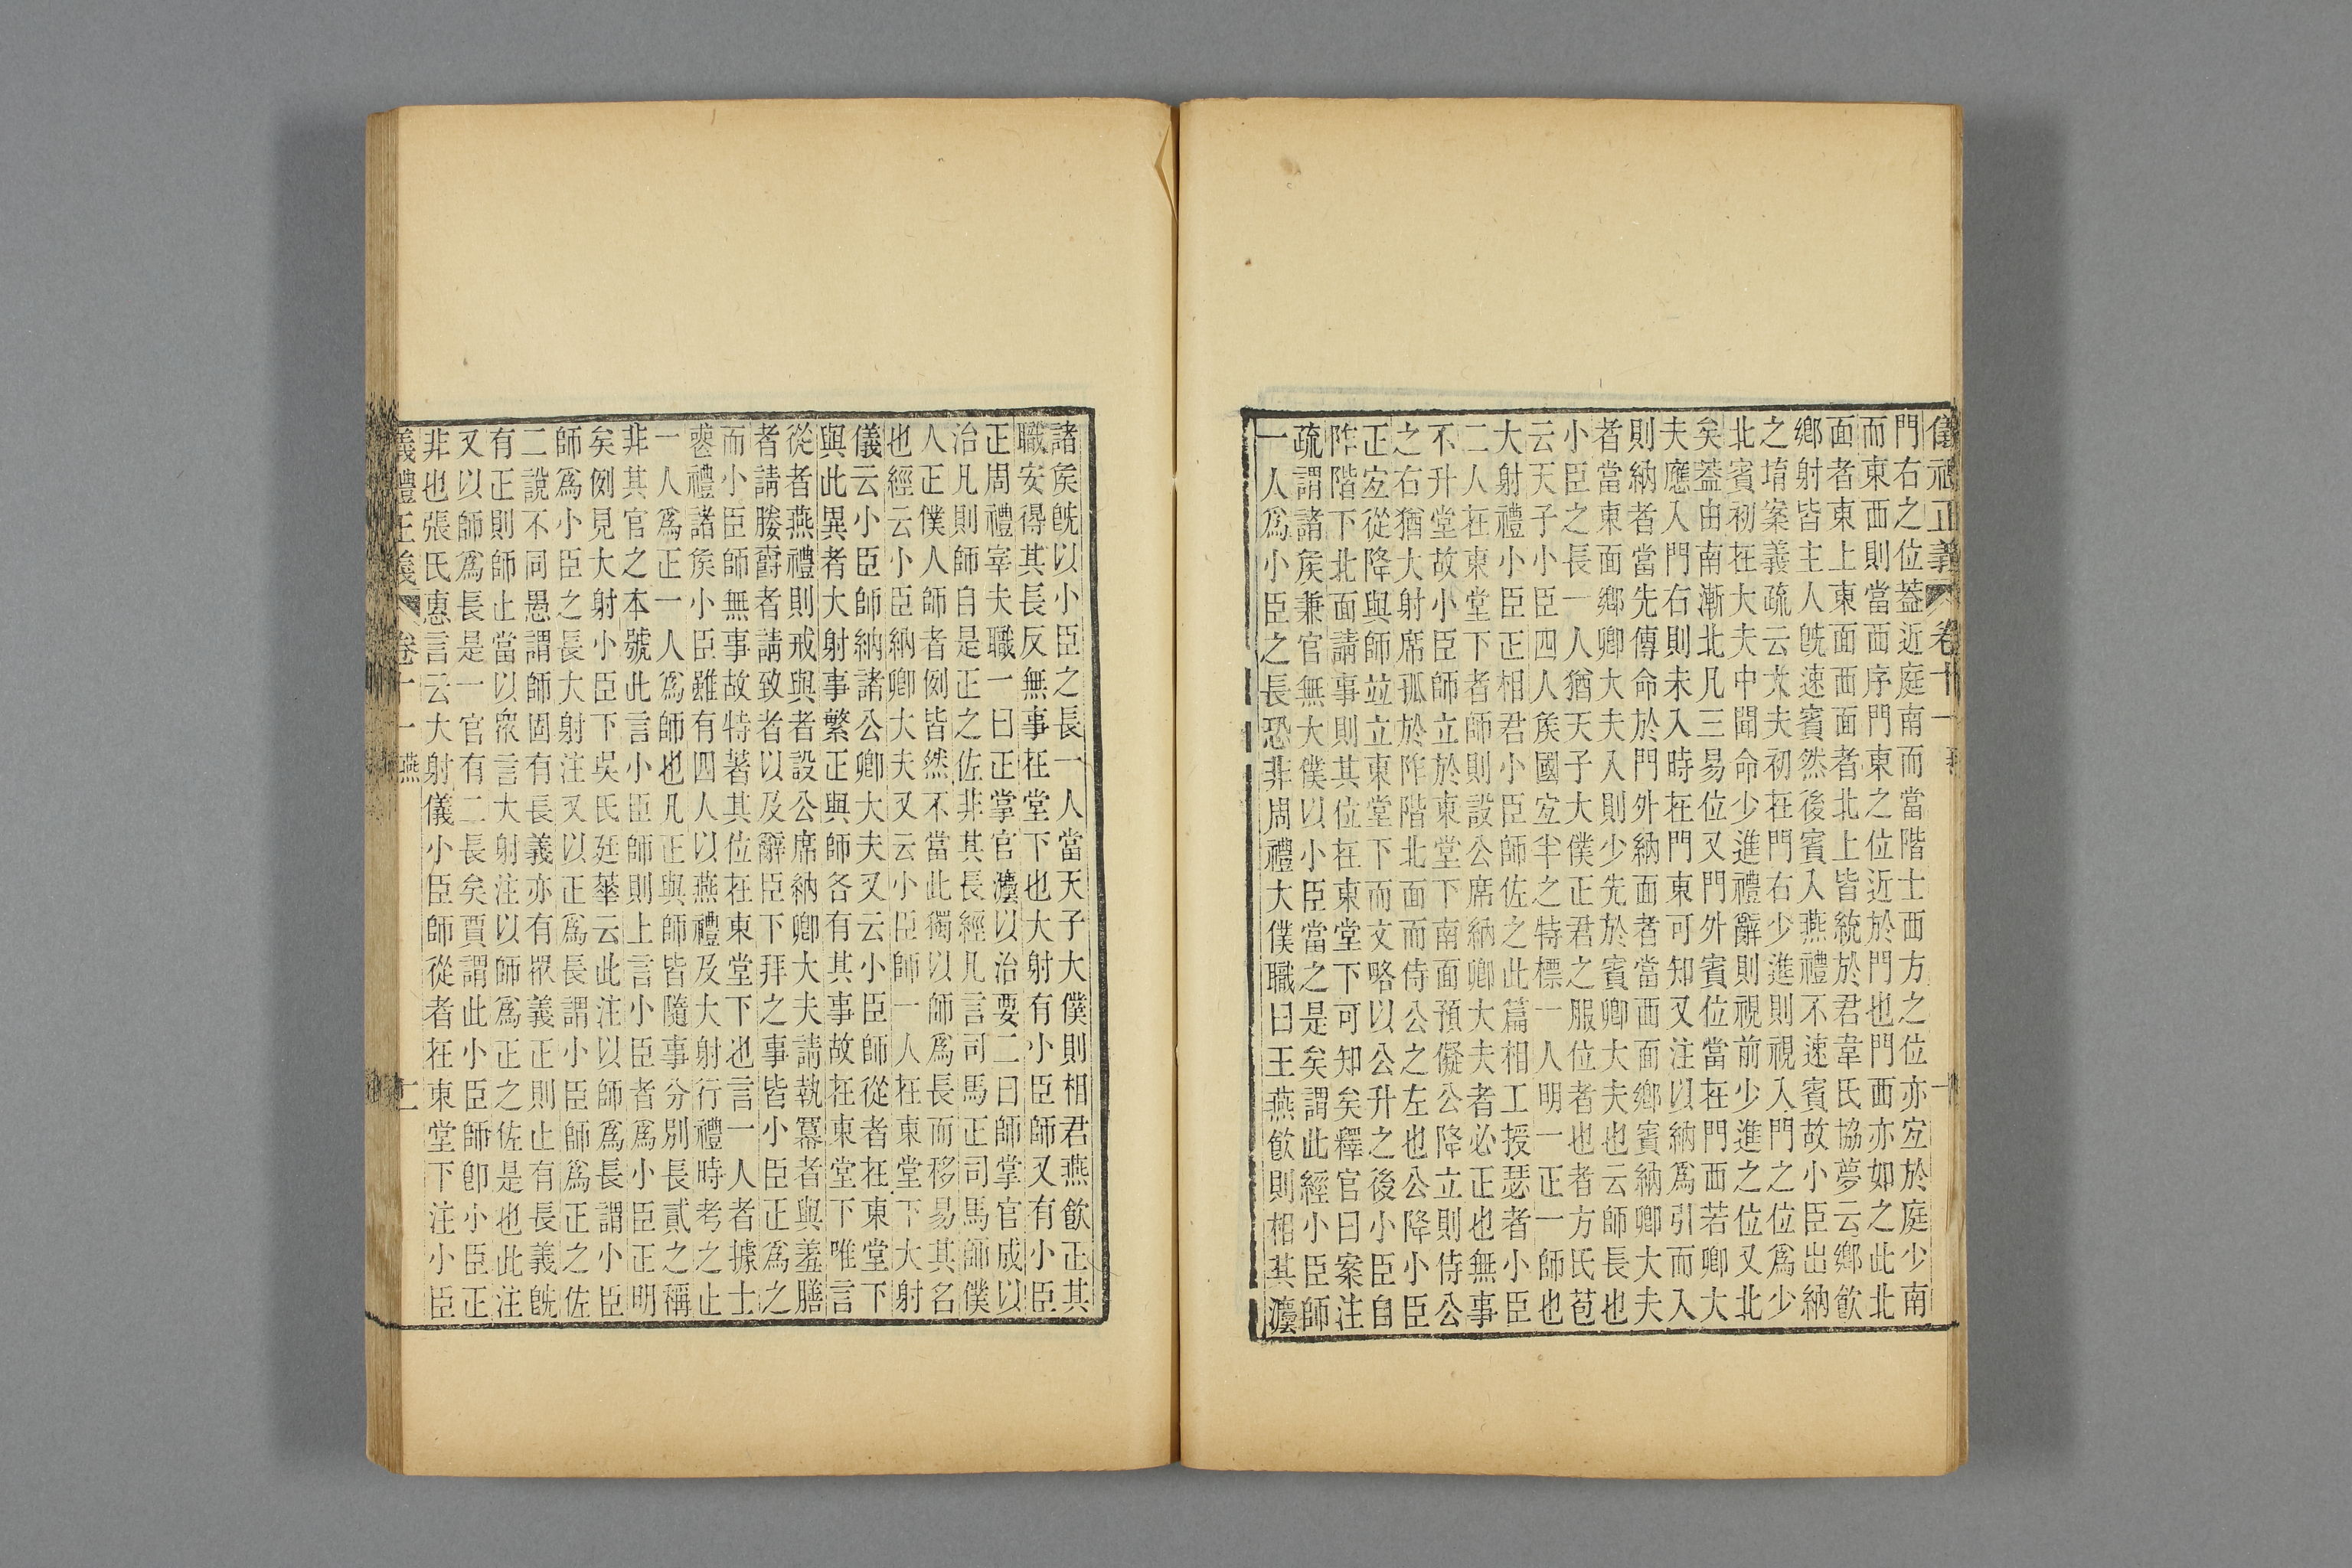 儀禮正義 卷十一 燕
門右之位蓋近庭南而當階士西方之位亦宐於庭少南
而東西則當西序門東之位近於門也門西亦如之此北
面者東上東面西面者北上皆統於君韋氏協夢云鄉飮
鄉射皆主人旣速賓然後賓入燕禮不速賓故小臣出納
之堉案義疏云大夫初在門右少進則視入門之位爲少
北賓初在大夫中聞命少進禮辭則視前少進之位又北
矣蓋由南漸北凡三易位又門外賓位當在門西若卿大
夫應入門右則未入時在門東可知又注以納爲引而入
則納者當先傳命於門外納面者當西面鄉賓納卿大夫
者當東面鄉卿大夫入則少先於賓卿大夫也云師長也
小臣之長一人猶天子大僕正君之服位者也者方氏苞
云天子小臣四人矦國宐半之特標一人明一正一師也
大射禮小臣正相君小臣師佐之此篇相工授瑟者小臣
二人在東堂下者師則設公席納卿大夫者必正也無事
不升堂故小臣師立於東堂下南面預儗公降立則侍公
之右猶大射席孤於阼階北面而侍公之左也公降小臣
正宐從降與師竝立東堂下而文略以公升之後小臣自
阼階下北面請事則其位在東堂下可知矣釋官曰案注
疏謂諸矦兼官無大僕以小臣當之是矣謂此經小臣師
一人爲小臣之長恐非周禮大僕職曰王燕飮則相其灋
諸矦旣以小臣之長一人當天子大僕則相君燕飮正其
職安得其長反無事在堂下也大射有小臣師又有小臣
正周禮宰夫職一曰正掌官灋以治要二曰師掌官成以
治凡則師自是正之佐非其長經凡言司馬正司馬師僕
人正僕人師者例皆然不當此獨以師爲長而移易其名
也經云小臣納卿大夫又云小臣師一人在東堂下大射
儀云小臣師納諸公卿大夫又云小臣師從者在東堂下
與此異者大射事繁正與師各有其事故在東堂下唯言
從者燕禮則戒與者設公席納卿大夫請執冪者與羞膳
者請媵爵者請致者以及辭臣下拜之事皆小臣正爲之
而小臣師無事故特著其位在東堂下也言一人者據士
䘮禮諸矦小臣雖有四人以燕禮及大射行禮時考之止
一人爲正一人爲師也凡正與師皆隨事分別長貳之稱
非其官之本號此言小臣師則上言小臣者爲小臣正明
矣例見大射小臣下吳氏廷華云此注以師爲長謂小臣
師爲小臣之長大射注又以正爲長謂小臣師爲正之佐
二說不同愚謂師固有長義亦有眾義正則止有長義旣
有正則師止當以眾言大射注以師爲正之佐是也此注
又以師爲長是一官有二長矣賈謂此小臣師卽小臣正
非也張氏惠言云大射儀小臣師從者在東堂下注小臣
儀禮正義 卷十一 燕 二